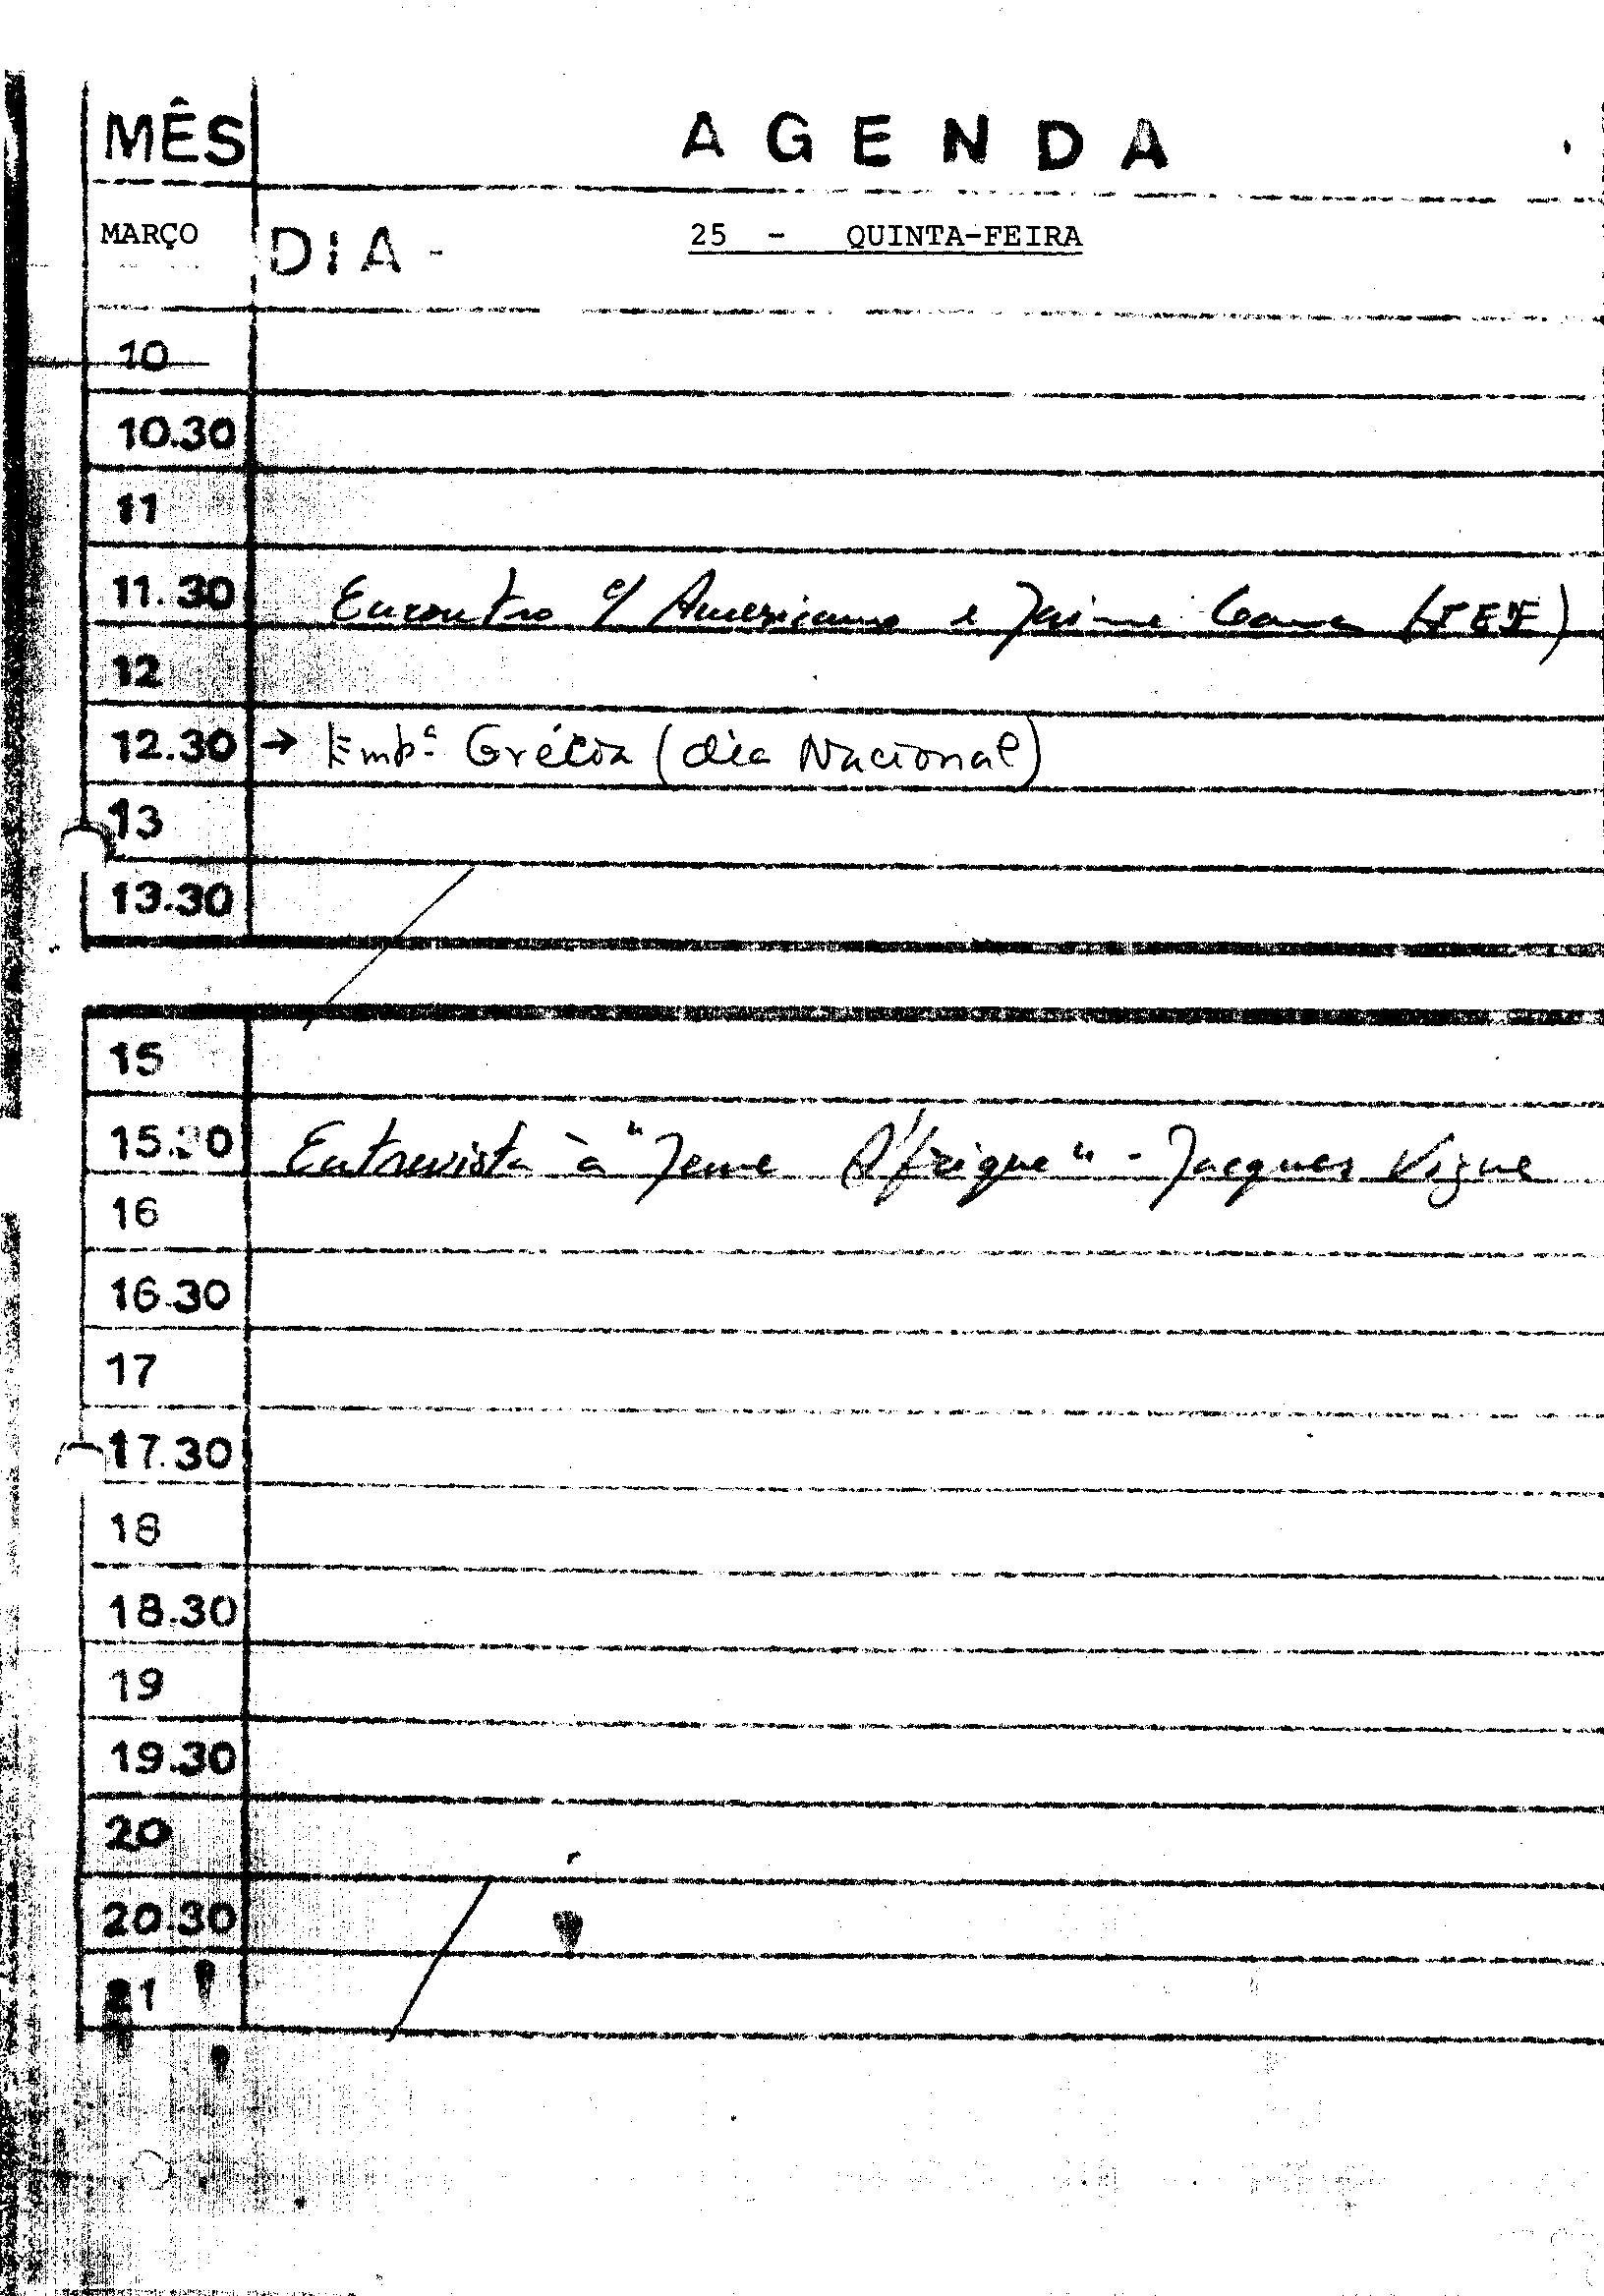 MÊS
AGENDA
MARÇO DIA - 25 - QUINTA-FEIRA
10
10.30
11
11.30 Encontro c/ Americano e Jaime Gama (IED)
12
12.30 → Embª Grécia (dia Nacional)
13
13.30
15
15.30 Entrevista à "Jeune Afrique" - Jacques Vigne
16
16.30
17
17.30
18
18.30
19
19.30
20
20.30
21